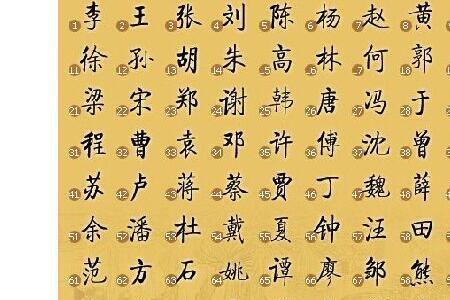 1 李 2 王 3 张 4 刘 5 陈 6 杨 7 赵 8 黄
11 徐 12 孙 13 胡 14 朱 15 高 16 林 17 何 18 郭
21 梁 22 宋 23 郑 24 谢 25 韩 26 唐 27 冯 28 于
31 程 32 曹 33 袁 34 邓 35 许 36 傅 37 沈 38 曾
41 苏 42 卢 43 蒋 44 蔡 45 贾 46 丁 47 魏 48 薛
51 余 52 潘 53 杜 54 戴 55 夏 56 钟 57 汪 58 田
61 范 62 方 63 石 64 姚 65 谭 66 廖 67 邹 68 熊